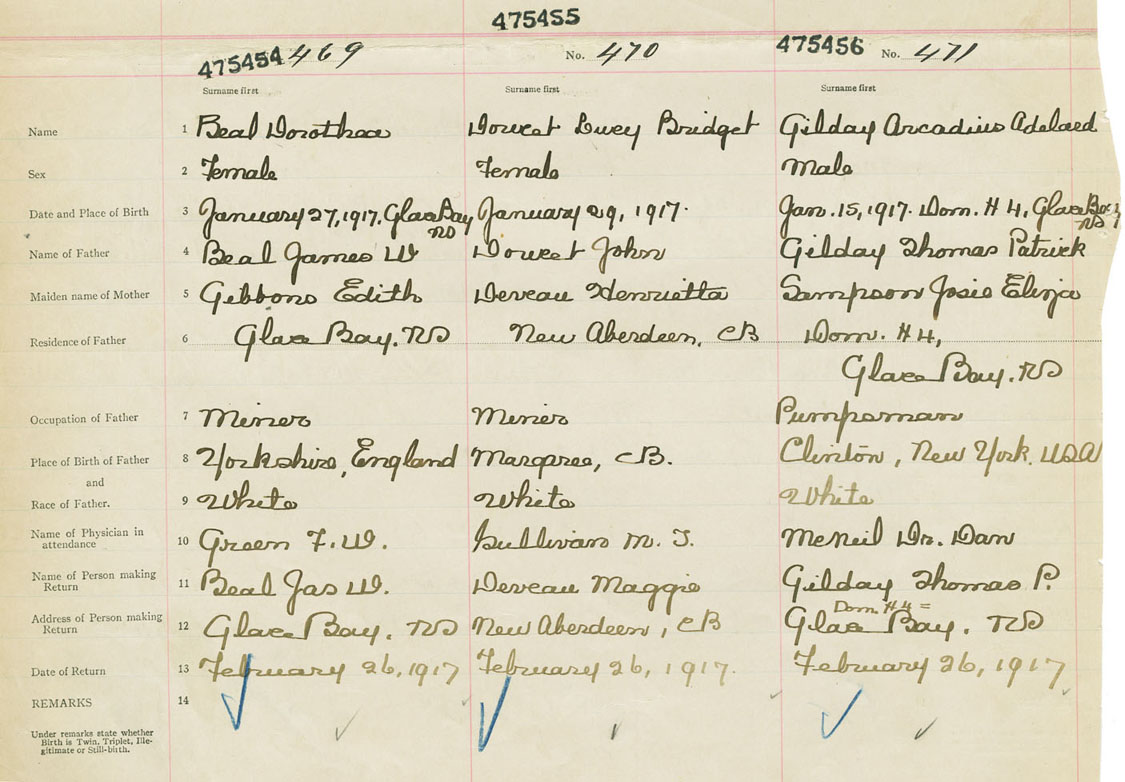 475454 469
475455
No. 470
475456 No. 471
Surname first Surname first Surname first
Name 1 Beal Dorothea Doucet Lucy Bridget Gilday Arcadius Adelaed
Sex 2 Female Female Male
Date and Place of Birth 3 January 27, 1917. Glace Bay NS January 29, 1917. Jan. 15, 1917. Dom. # 4, Glace Bay NS
Name of Father 4 Beal James W Doucet John Gilday Thomas Patrick
Maiden name of Mother 5 Gibbons Edith Deveau Henrietta Sampson Josie Eliza
Residence of Father 6 Glace Bay. NS New Aberdeen, CB Dom. # 4,
Glace Bay. NS
Occupation of Father 7 Miner Miner Pumpsman
Place of Birth of Father 8 Yorkshire, England Margree, CB. Clinton, New York. USA
and
Race of Father. 9 White White White
Name of Physician in
attendance 10 Green F. W. Sullivan M. T. McNeil Dr. Dan
Name of Person making
Return 11 Beal Jas W. Deveau Maggie Gilday Thomas P.
Dom. # 4 =
Address of Person making
Return 12 Glace Bay. NS New Aberdeen, CB Glace Bay. NS
Date of Return 13 February 26, 1917 February 26, 1917. February 26, 1917
REMARKS 14
Under remarks state whether
Birth is Twin, Triplet, Ille-
gitimate or Still-birth.